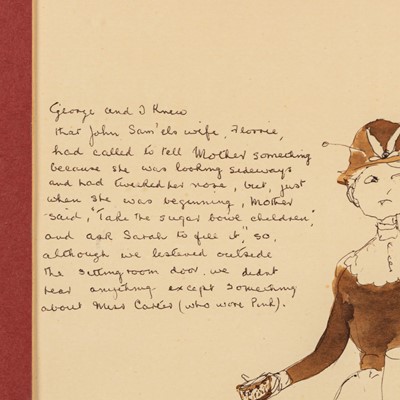 George and I knew
that John Sam'els wife, Florrie,
had called to tell Mother something
because she was looking sideways
and had twicked her nose, but, just
when she was beginning, Mother
said, "Take the sugar bowl children,
and ask Sarah to fill it," so,
although we listened outside
the sitting room door, we didnt
hear anything except something
about Miss Carter (who wore Pink).